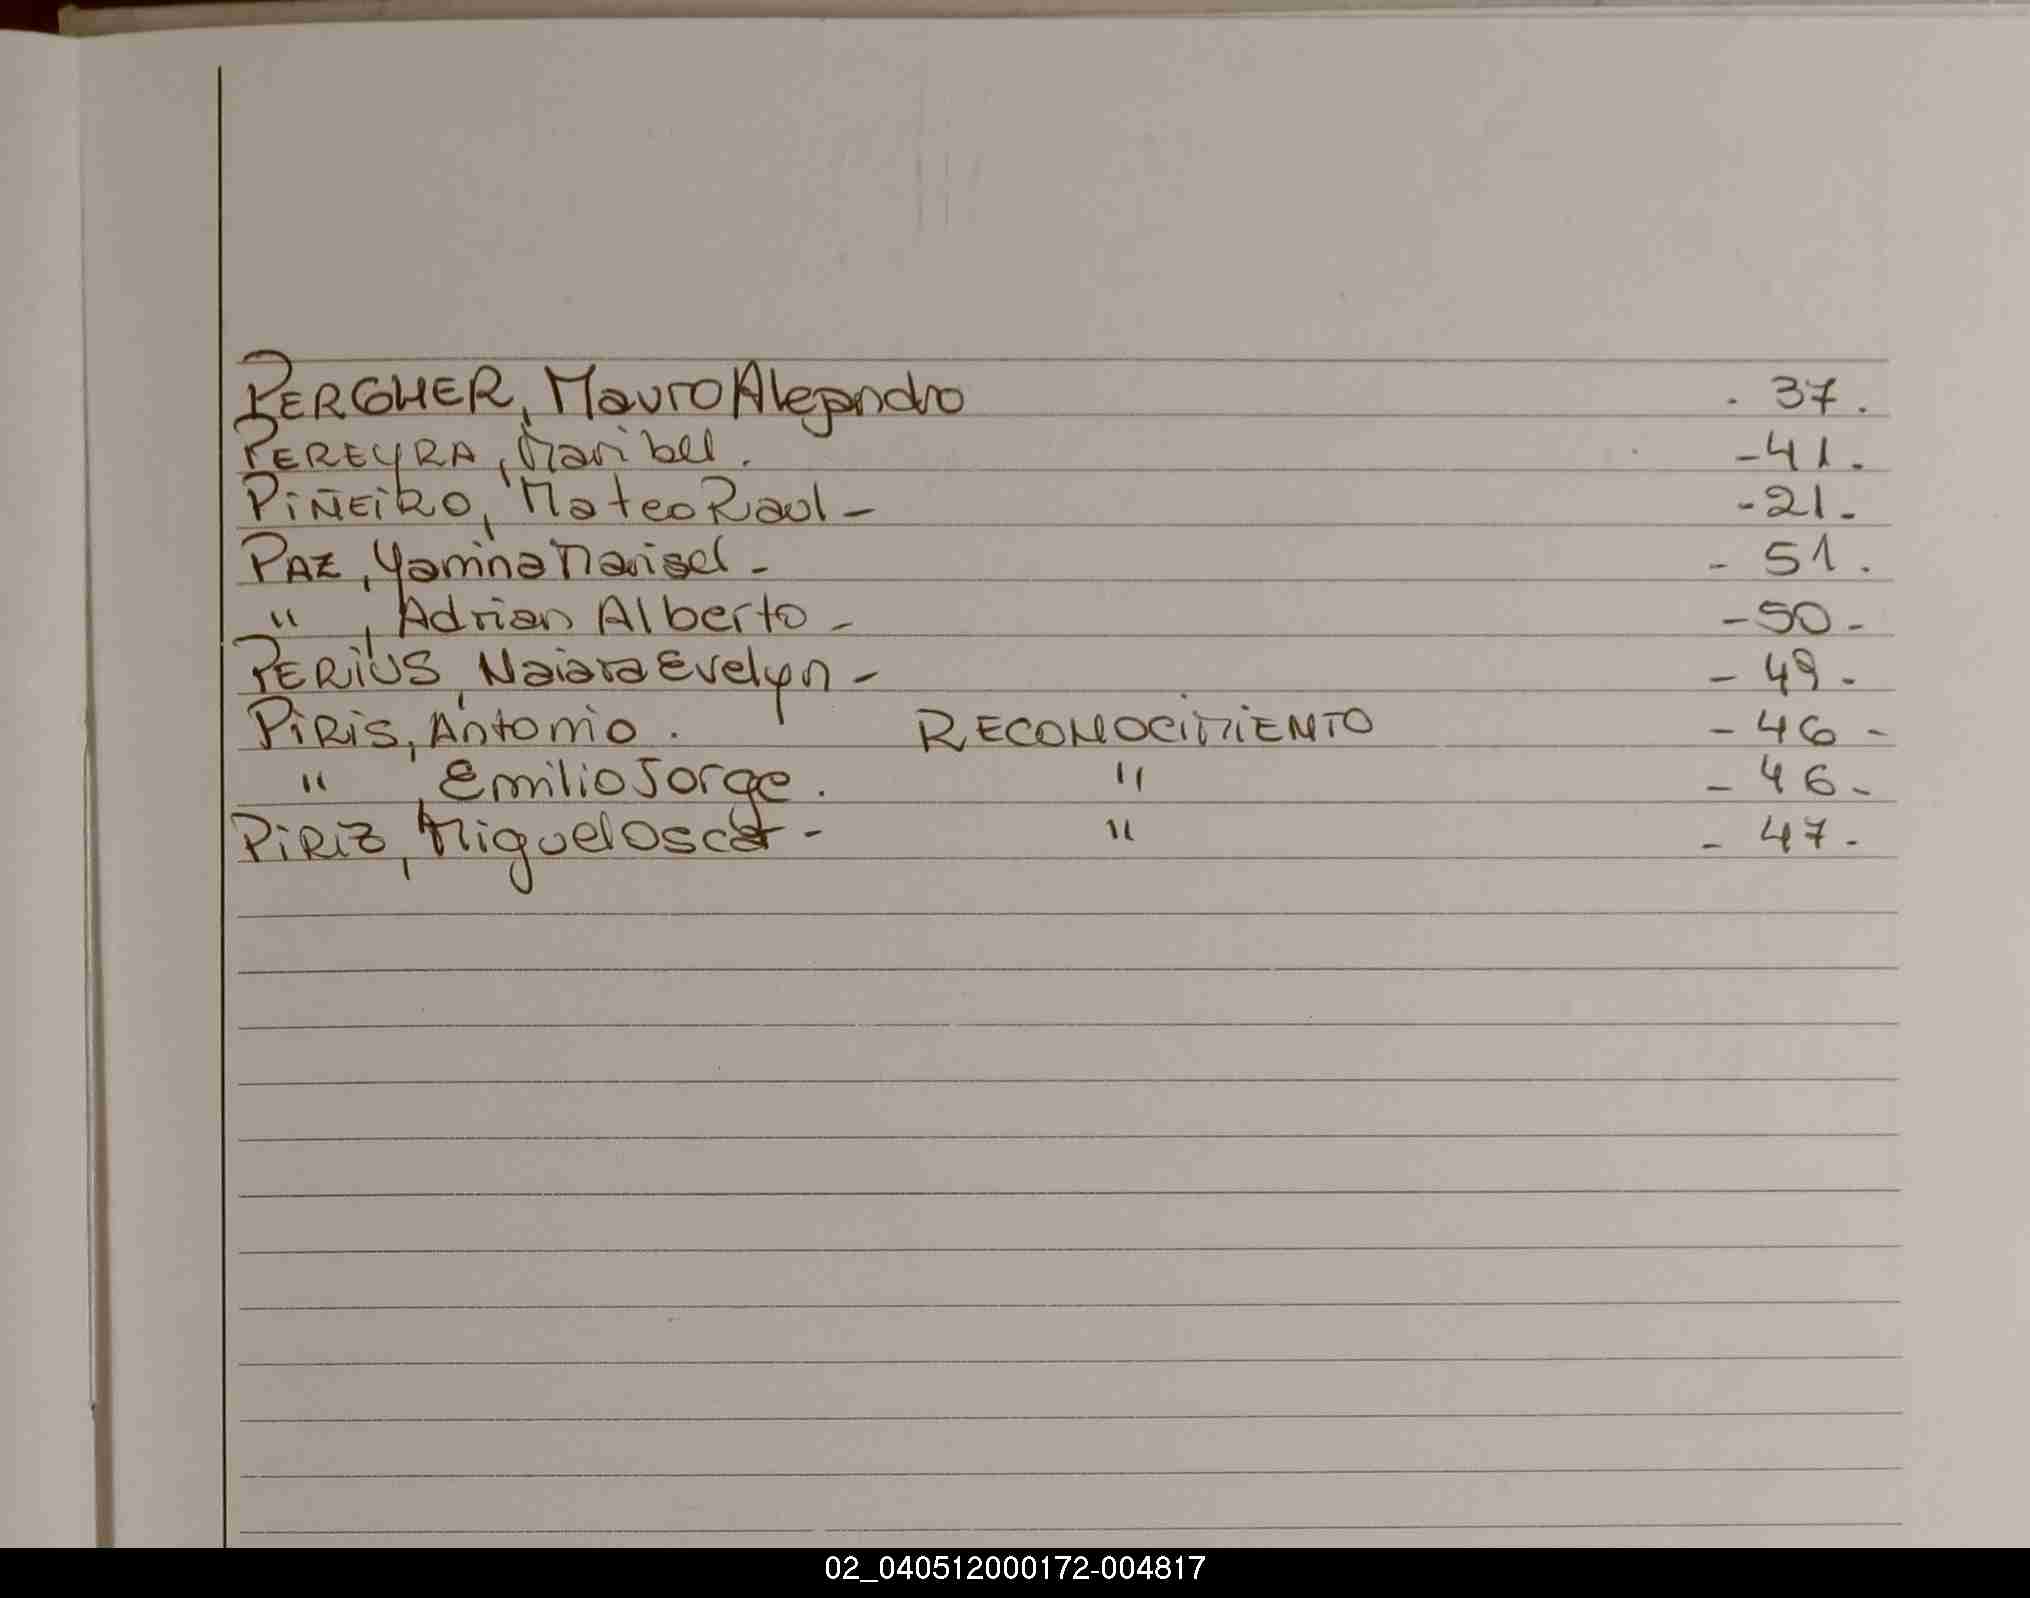 PERGHER, Mauro Alejandro . 37.
PEREYRA, Maribel. -41.
PIÑEIRO, Mateo Raul - -21-
PAZ, Yamina Marisel - - 51.
" , Adrian Alberto - -50-
PERIUS, Naiara Evelyn - - 49-
PIRIS, Antonio. RECONOCIMIENTO - 46 -
" , Emilio Jorge. " - 46-
PIRIZ, Miguel Oscar - " - 47-
02_040512000172-004817